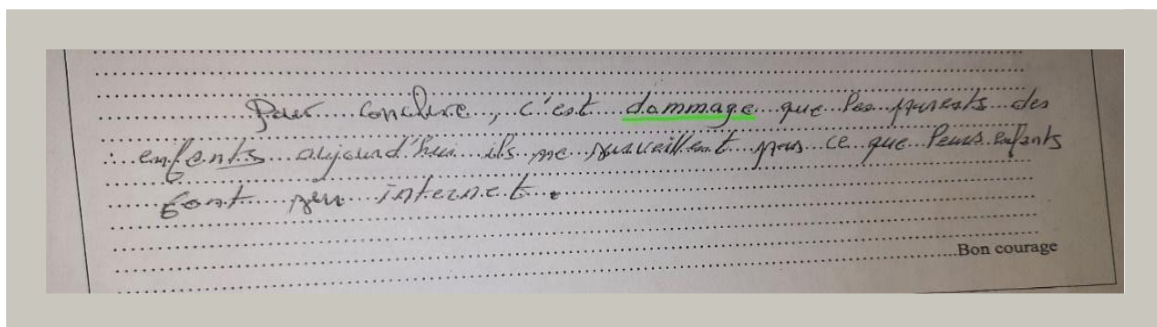 Pour conclure, c'est dommage que les parents des
enfants aujourd'hui ils ne surveillent pas ce que leurs enfants
font sur internet.
Bon courage